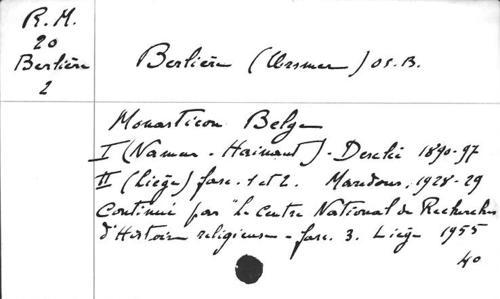 R.M.
20
Berlière
2
Berlière (Ursmer) O.S.B.
Monasticon Belge
I (Namur - Hainaut). - Desclée 1890-97
II (Liège) fasc. 1 et 2. Maredsous, 1928-29
Continué par "Le Centre National de Recherches
d'Histoire religieuse - fasc. 3. Liège 1955
40